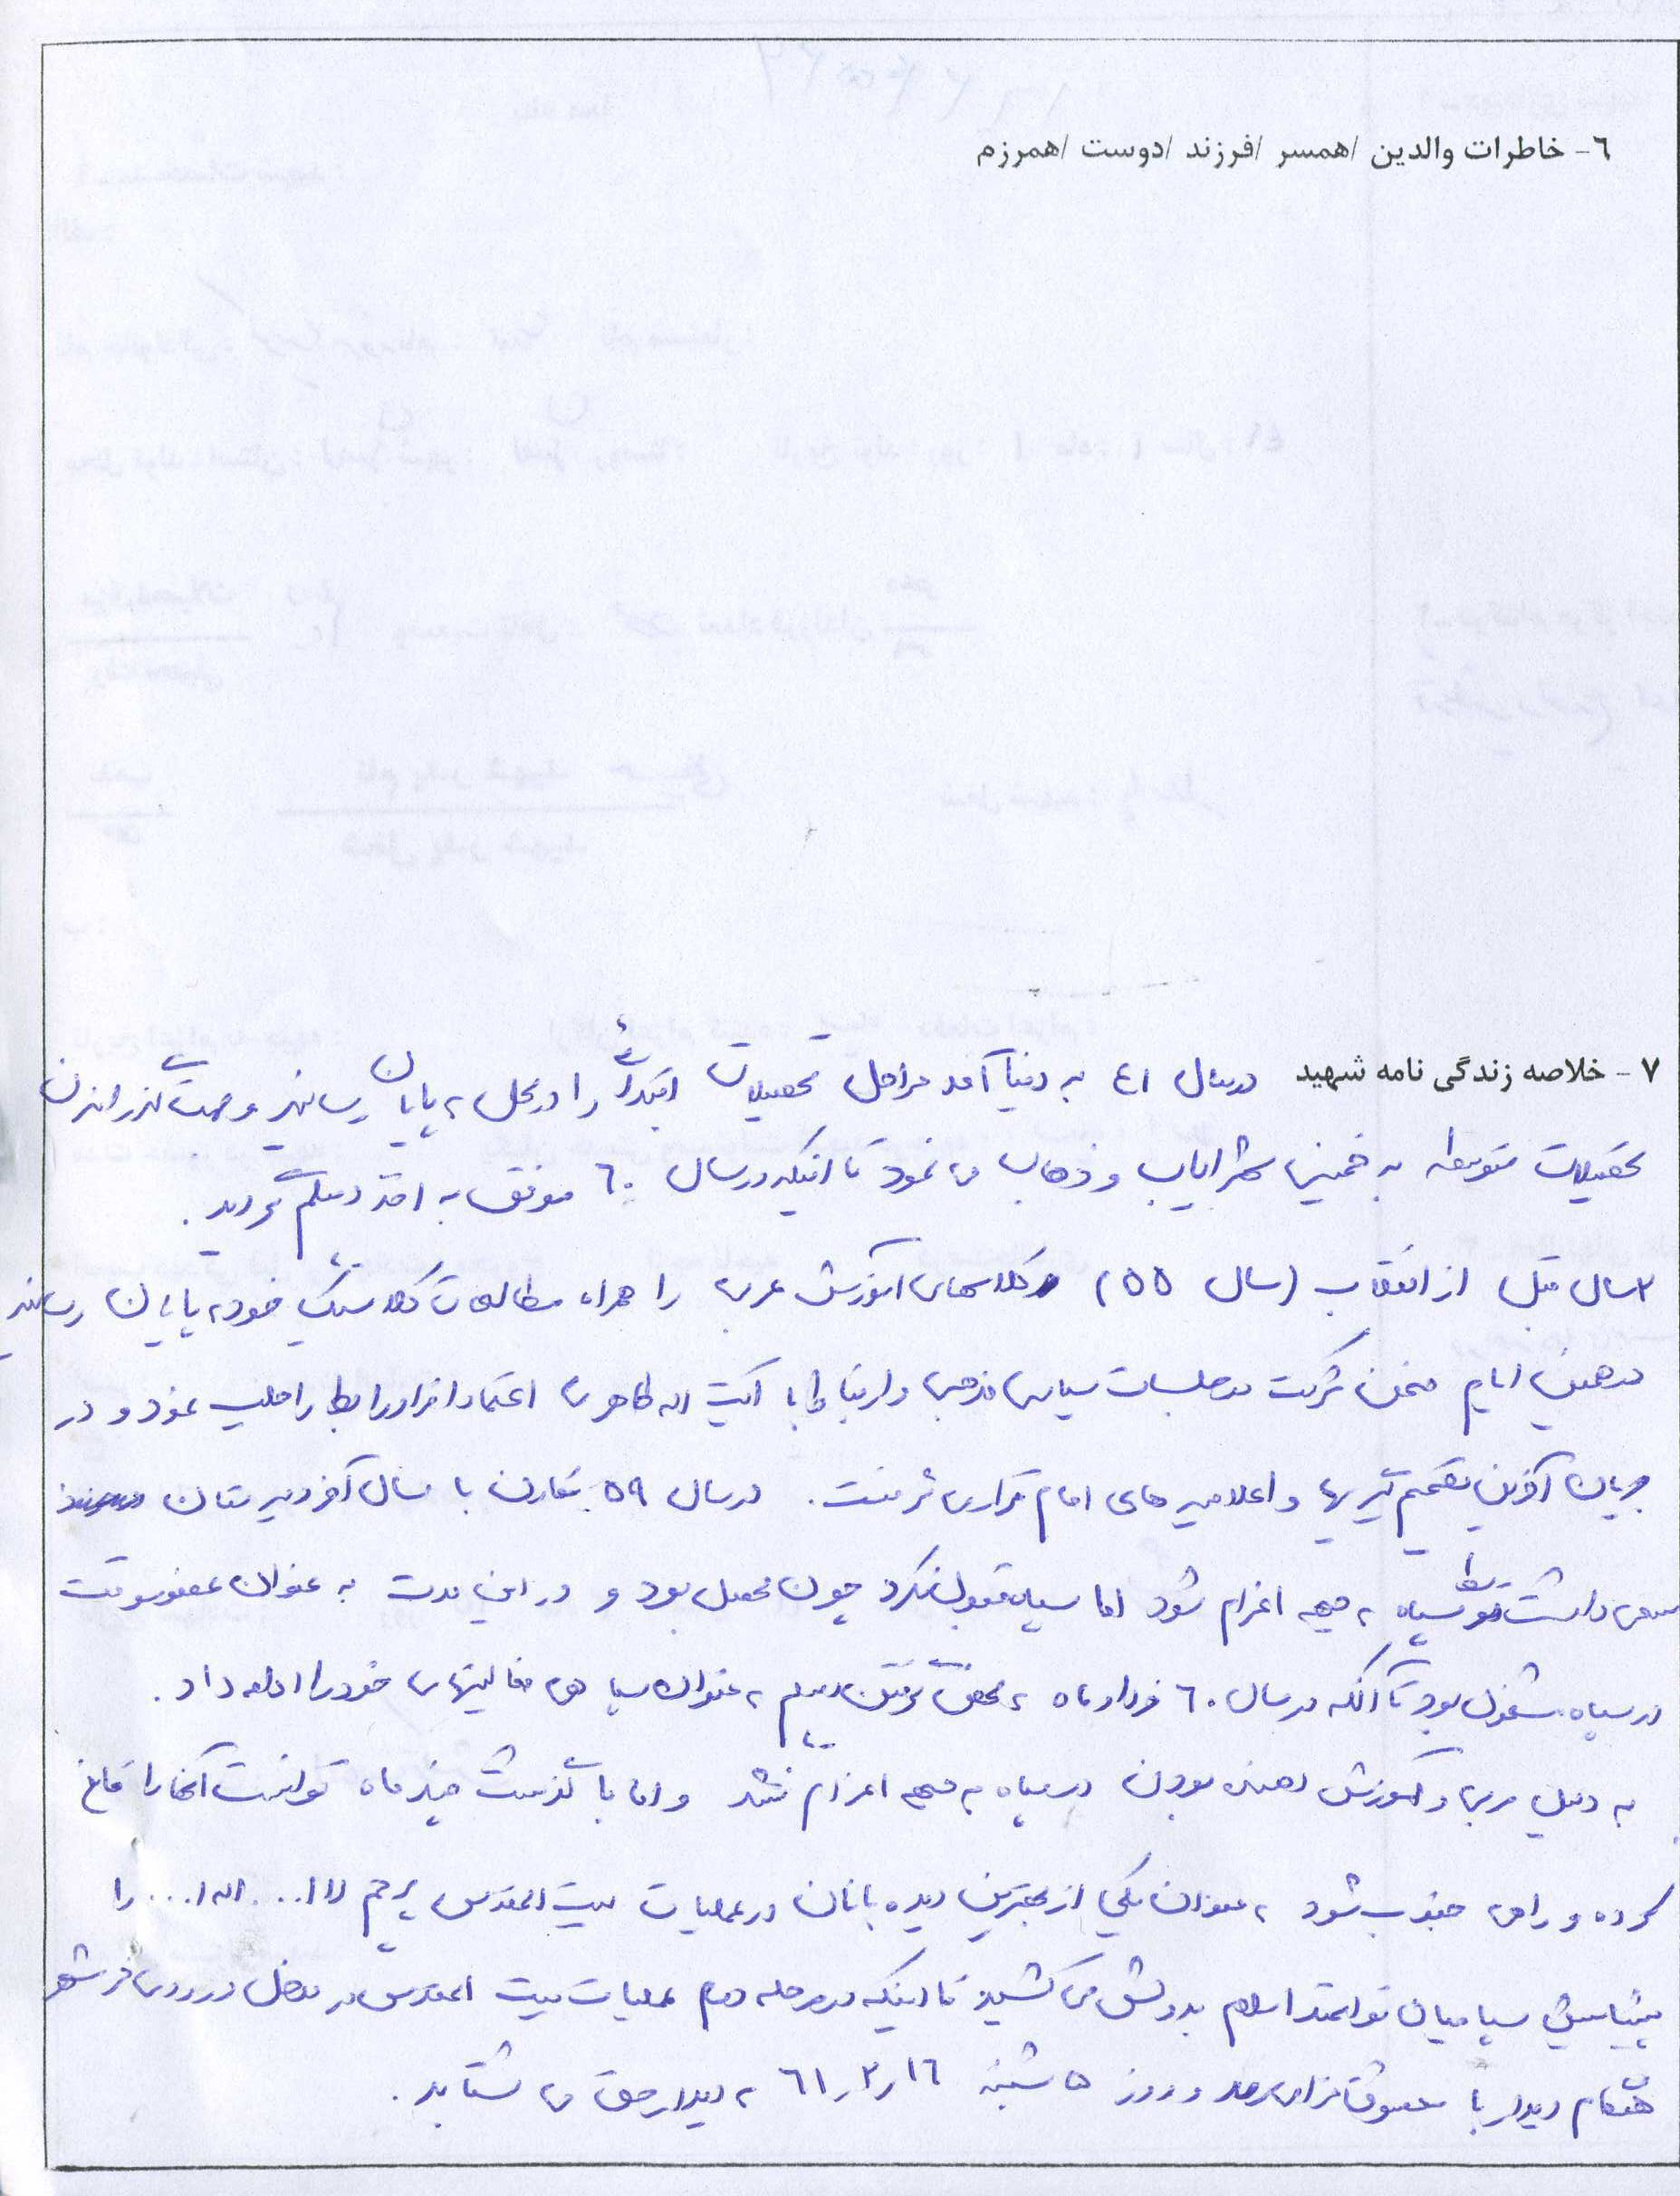 ٦- خاطرات والدین /همسر /فرزند /دوست /همرزم
٧- خلاصه زندگی نامه شهید در سال ٤١ به دنیا آمد مراحل تحصیلات ابتدائی را در محل به پایان رسانید و جهت گذراندن
تحصیلات متوسطه به خمینی شهر ایاب و ذهاب می نمود تا اینکه در سال ٦٠ موفق به اخذ دیپلم گردید.
٢ سال قبل از انقلاب (سال ٥٥) کلاسهای آموزش عربی را همراه مطالعات کلاسیک خود به پایان رسانید
در همین ایام ضمن شرکت در جلسات سیاسی مذهبی و ارتباط با آیت اله طاهری اعتماد افراد رابط را جلب نمود و در
جریان آخرین تصمیم گیریها و اعلامیه های امام قرار می گرفت. در سال ٥٩ بتقارن با سال آخر دبیرستان
سعی داشت توسط سپاه به جبهه اعزام شود اما سپاه قبول نکرد چون محصل بود و در این مدت به عنوان عضو موقت
در سپاه مشغول بود تا آنکه در سال ٦٠ خرداد ماه به محض گرفتن دیپلم به عنوان سپاهی فعالیتهای خود را ادامه داد.
به دلیل مربی و آموزش دهنده بودن در سپاه به جبهه اعزام نشد و اما با گذشت چند ماه توانست آنها را قانع
کرده و راهی جنوب شود به عنوان یکی از بهترین دیده بانان در عملیات بیت المقدس پرچم لا ا... الا ا... را
پیشاپیش سپاهیان توانمند اسلام بدوش می کشید تا اینکه در مرحله دوم عملیات بیت المقدس در مدخل ورودی خرمشهر
هنگام دیدار با معشوق فرا می رسد و روز ٥ شنبه ٦١/٢/١٦ به دیدار حق می شتابد.